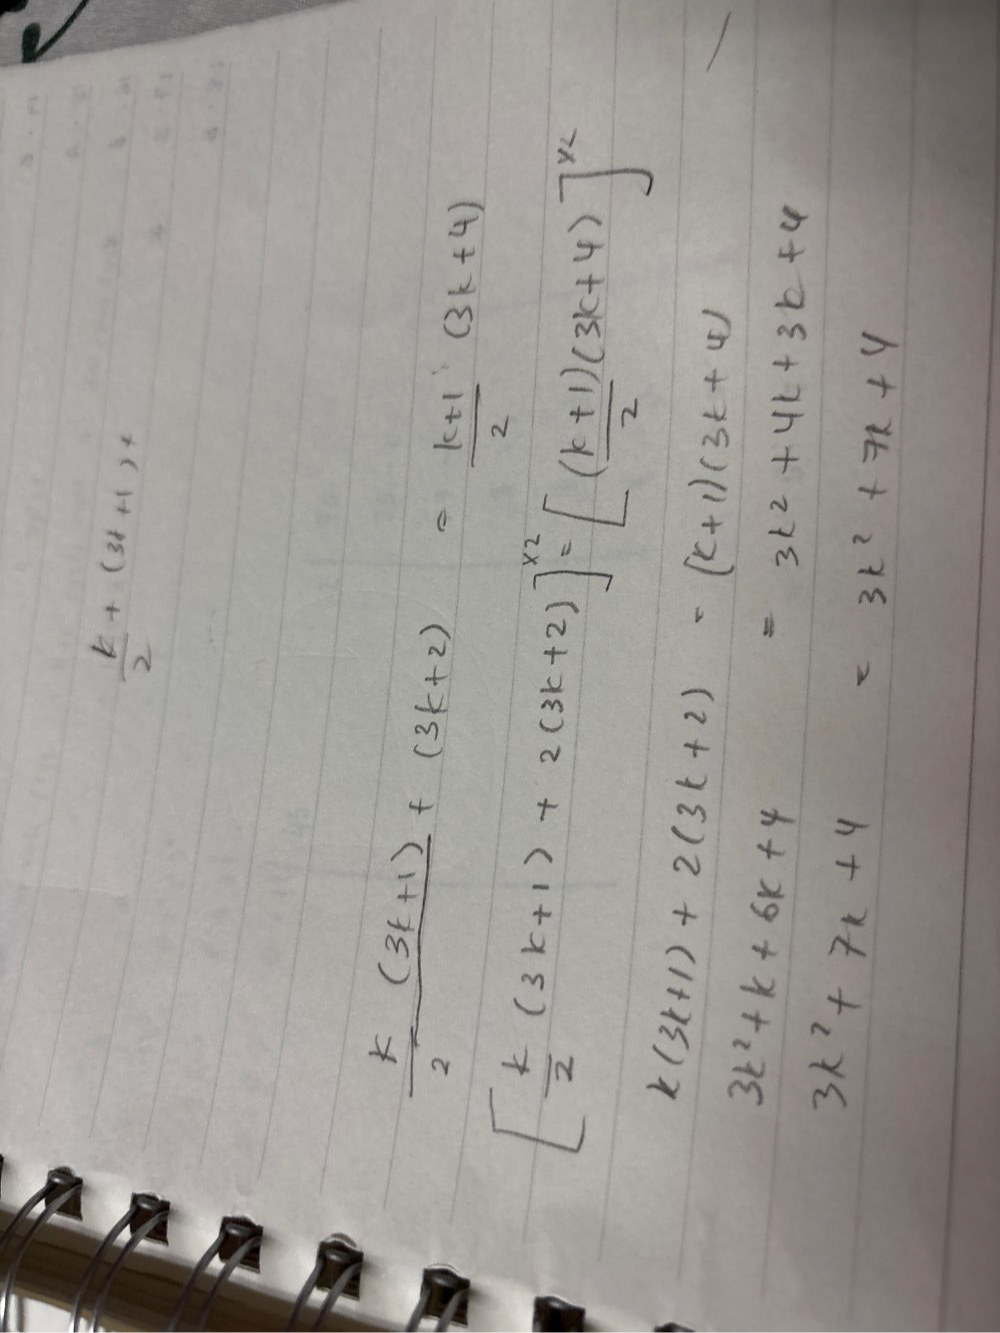 k/2 + (3k+1) +
k (3k+1)/2 + (3k+2) = k+1/2 (3k+4)
[k/2 (3k+1) + 2(3k+2)]×2 = [(k+1)(3k+4)/2]×2
k(3k+1) + 2(3k+2) = (k+1)(3k+4)
3k²+k+6k+4 = 3k²+4k+3k+4
3k²+7k+4 = 3k²+7k+4